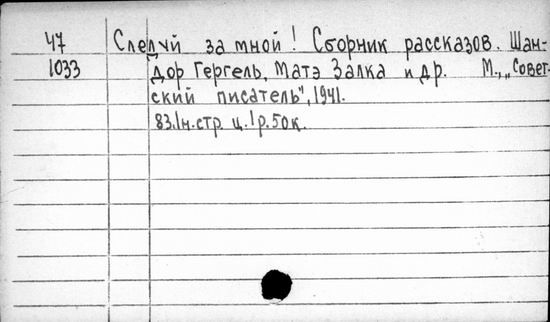 47 Следуй за мной! Сборник рассказов. Шан-
1033 дор Гергель, Матэ Залка и др. М., „Совет-
ский писатель", 1941.
83.1н.стр. ц. 1р. 50к.